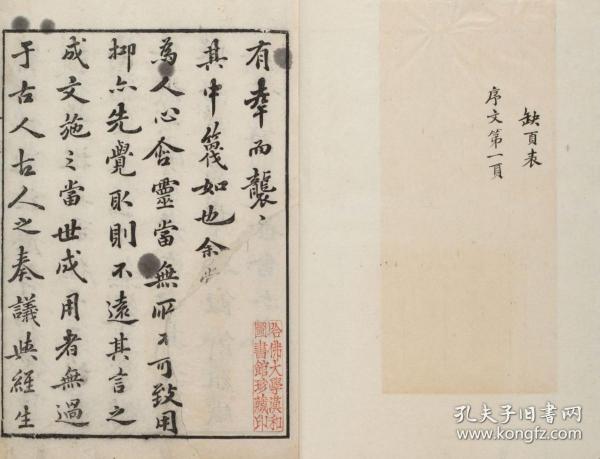 缺頁表
序文第一頁
有率而襲
其中篾如也余
為人心舍靈當無所不可致用
抑亦先覺取則不遠其言之
成文施之當世成用者無過
于古人古人之奏議與經生
哈佛大學漢和
圖書館珍藏印
孔夫子旧书网
www.kongfz.com